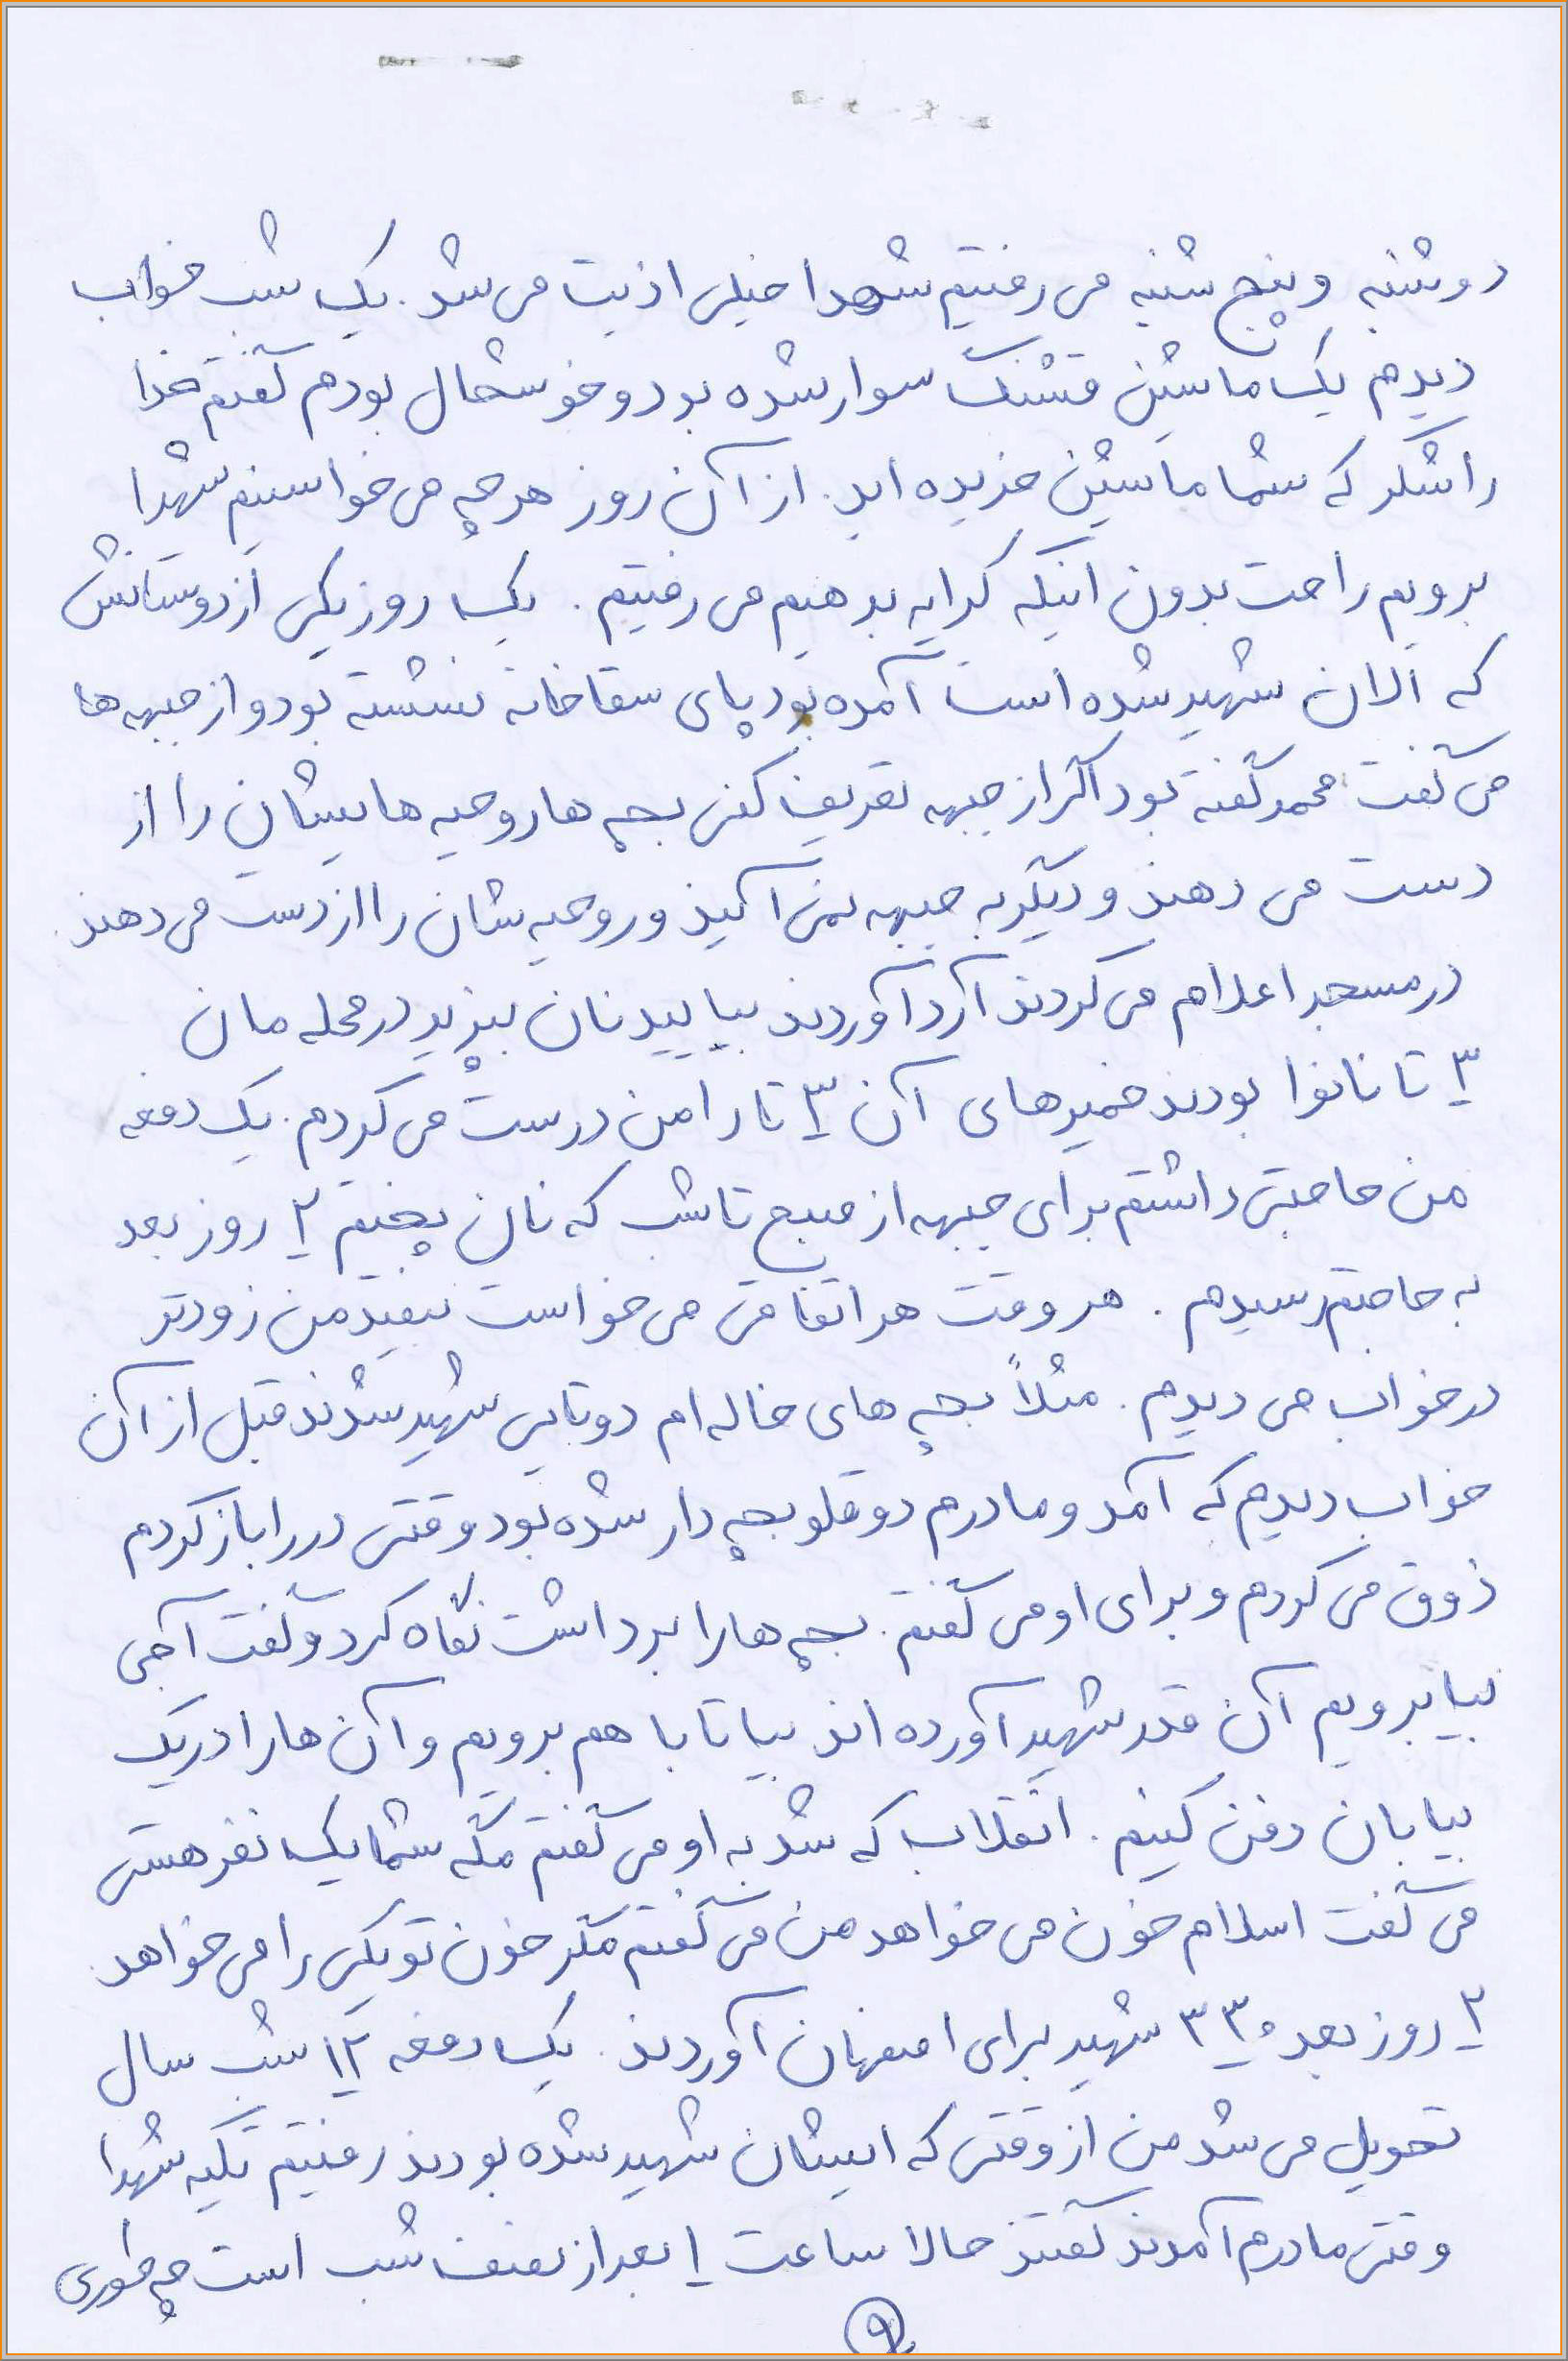 دوشنبه و پنج شنبه می رفتیم شهدا خیلی اذیت می شد. یک شب خواب
دیدم یک ماشین قشنگ سوار شده بود و خوشحال بودم گفتم خدا
را شکر که شما ماشین خریده اید. از آن روز هر چه می خواستیم شهدا
برویم راحت بدون اینکه کرایه بدهیم می رفتیم. یک روز یکی از دوستانش
که الان شهید شده است آمده بود پای سقاخانه نشسته بود و از جبهه ها
می گفت محمد گفته بود اگر از جبهه تعریف کنی بچه ها روحیه هایشان را از
دست می دهند و دیگر به جبهه نمی آیند و روحیه شان را از دست می دهند.
در مسجد اعلام می کردند آرد آوردند بیایید نان بپزید در محله مان
۳ تا نانوا بودند خمیرهای آن ۳ تا را من درست می کردم. یک دفعه
من حاجتی داشتم برای جبهه از صبح تا شب که نان پختیم ۲ روز بعد
به حاجتم رسیدم. هر وقت هر اتفاقی می خواست بیفتد من زودتر
در خواب می دیدم. مثلاً بچه های خاله ام دوتایی شهید شدند قبل از آن
خواب دیدم که آمد و مادرم دوقلو بچه دار شده بود وقتی در را باز کردم
ذوق می کردم و برای او می گفتم. بچه ها را برداشت نگاه کرد و گفت آجی
بیا برویم آن قدر شهید آورده اند بیا تا با هم برویم و آن ها را در یک
بیابان دفن کنیم. انقلاب که شد به او می گفتم مگه شما یک نفر هستی
می گفت اسلام خون می خواهد من می گفتم مگر خون تو یکی را می خواهد.
۲ روز بعد ۳۳۰ شهید برای اصفهان آوردند. یک دفعه ۱۲ شب سال
تحویل می شد من از وقتی که ایشان شهید شده بودند رفتیم تکیه شهدا
وقتی مادرم آمدند گفتند حالا ساعت ۱ بعد از نصف شب است چه طوری
۹